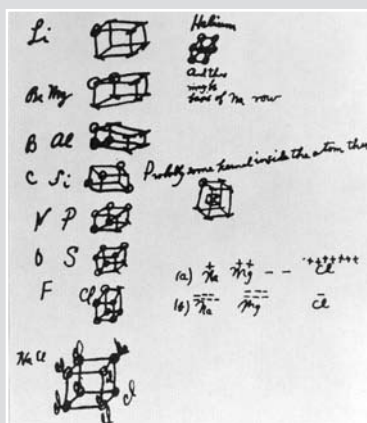 Li
Helium
Be Mg
And this
single
base of
row
B Al
C Si
Probably some kernel inside the atom
N P
O S
F Cl
(a) + ++ - - +++++++
Na Mg Cl
(b)
Na Mg Cl
Na Cl
Cl